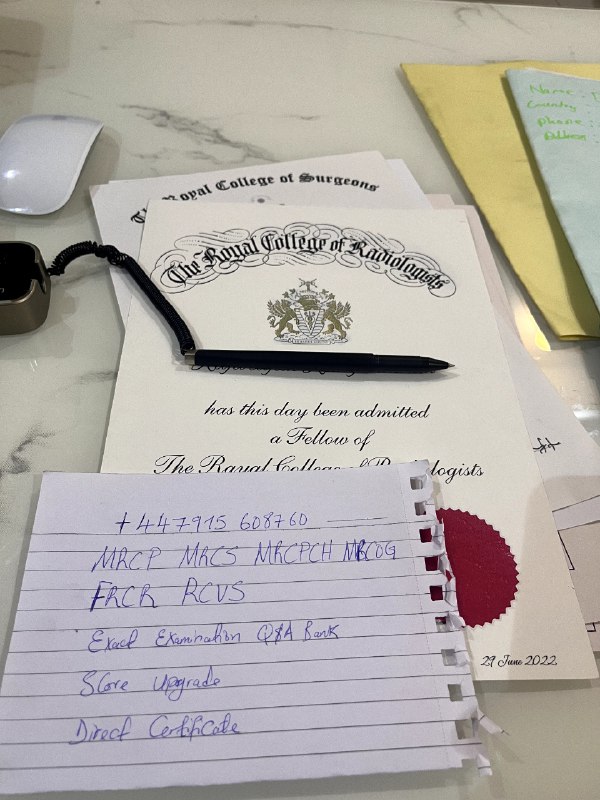 Name :
Country
Phone :
Address :
The Royal College of Surgeons
The Royal College of Radiologists
has this day been admitted
a Fellow of
The Royal College of Radiologists
29 June 2022
+447915 608760
MRCP MRCS MRCPCH MRCOG
FRCR RCVS
Exact Examination Q&A Bank
Score Upgrade
Direct Certificate